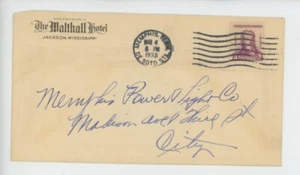 The Walthall Hotel
JACKSON, MISSISSIPPI
MEMPHIS, TENN.
MAR 4
6 PM
1933
DE SOTO STA.
Memphis Power & Light Co
Madison and Third St
City